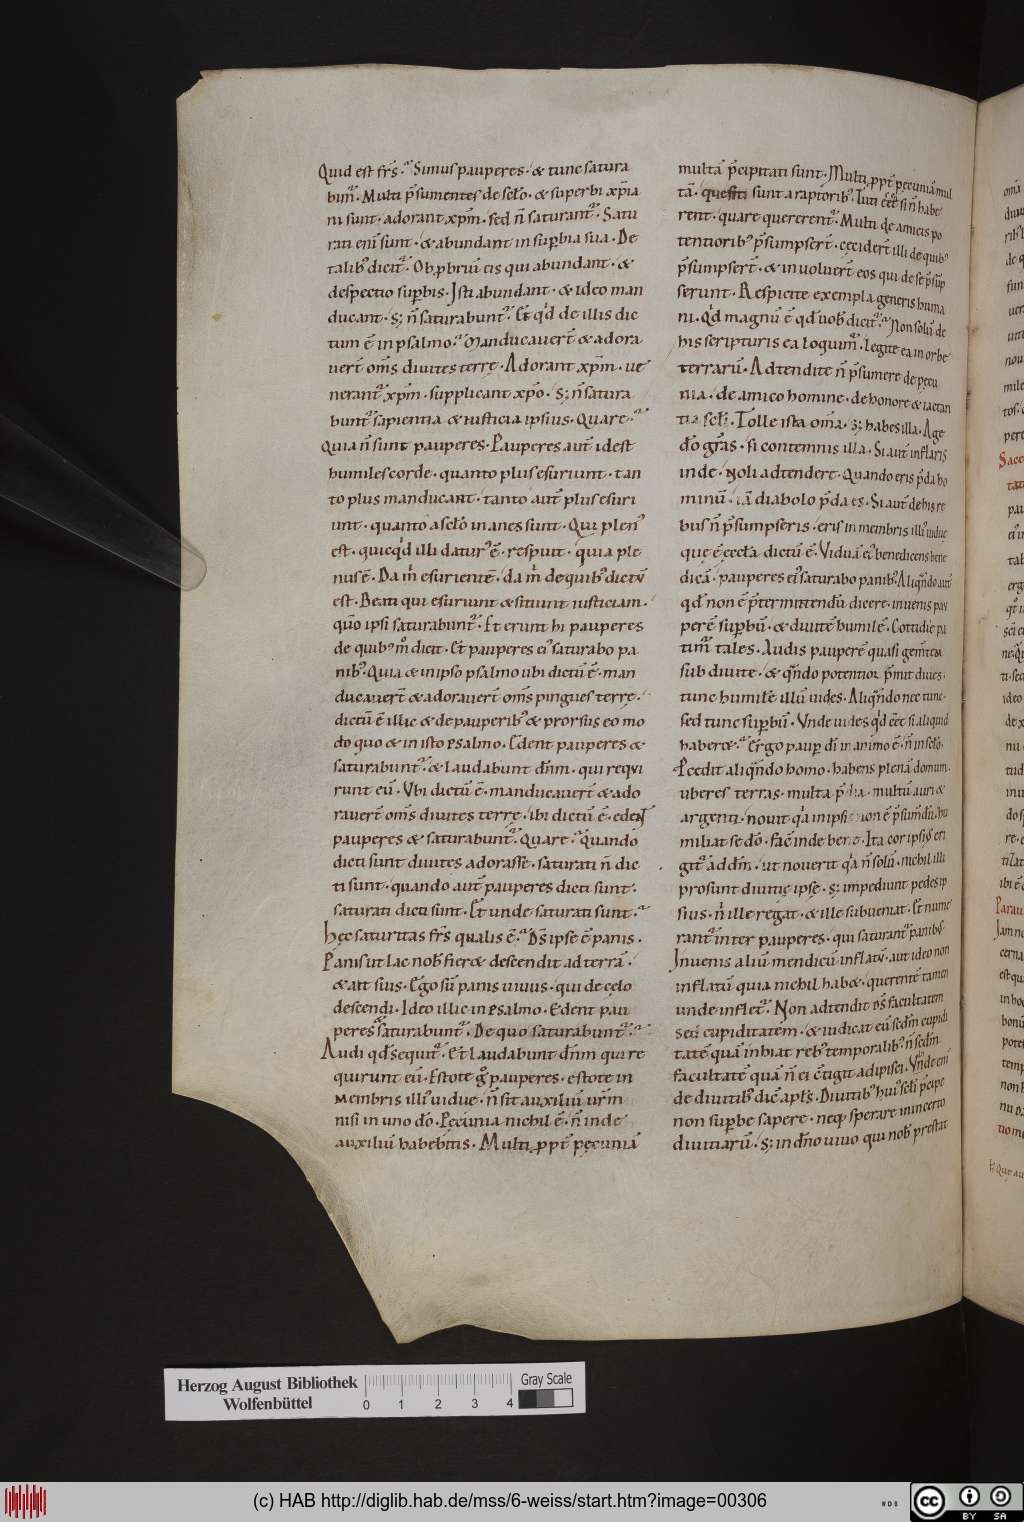 Quid est fr̄s. Simus pauperes. & tunc satura
bim̃. Multi p̄sumentes de sc̄lo. & superbi xp̄ia
ni sunt. adorant xp̄m. sed n̄ saturant᷑. Satu
rati eni sunt. & abundant in sup̱bia sua. De
talib' dicit᷑. Obp̱briū eis qui abundant. &
despectio sup̱bis. Isti abundant. & ideo man
ducant. s; n̄ saturabunt᷑. Et qd̓ de illis dic
tum ē in psalmo. Manducaver̄t & adora
ver̄t om̄s divites terrę. Adorant xp̄m. ve
nerant᷑ xp̄m. supplicant xp̄o. s; n̄ satura
bunt᷑ sapientia & iusticia ipsius. Quare.
Quia n̄ sunt pauperes. Pauperes aut̄ id est
humiles corde. quanto plus esuriunt. tan
to plus manducant. tanto aut̄ plus esuri
unt. quanto a sc̄lo inanes sunt. Qui plen'
est. quicqd̓ illi datur ē. respuit. quia ple
nus ē. Da m̓ esurientē. da m̓ de quib' dictū
est. Beati qui esuriunt & sitiunt iusticiam.
qūo ipsi saturabunt᷑. Et erunt hi pauperes
de quib' m̊ dicit. Et pauperes ei' saturabo pa
nib'. Quia & in ipso psalmo ubi dictū ē. man
ducaver̄t & adoraver̄t om̄s pingues terrę.
dictū ē illic & de pauperib' & prorsus eo mo
do quo & in isto psalmo. Edent pauperes &
saturabunt᷑. & laudabunt dn̄m. qui requi
runt eū. Ubi dictū ē. manducaver̄t & ado
raver̄t om̄s divites terrę. ibi dictū ē. edent
pauperes & saturabunt᷑. Quare. Quando
dicti sunt divites adorasse. saturati n̄ dic
ti sunt. quando aut̄ pauperes dicti sunt.
saturati dicti sunt. Et unde saturati sunt.
Hęc saturitas fr̄s qualis ē. Dn̄s ipse ē panis.
Panis ut lac nob' fier& descendit ad terrā.
& ait suis. Ego sū panis vivus. qui de cęlo
descendi. Ideo illic in psalmo. Edent pau
peres & saturabunt᷑. De quo saturabunt᷑.
Audi qd̓ sequit᷑. Et laudabunt dn̄m qui re
quirunt eū. Estote g̊ pauperes. estote in
membris illi' viduę. n̄ sit auxiliū vr̄m
nisi in uno dō. Pęcunia nichil ē. n̄ inde
auxiliū habebitis. Multi ppt̄ pęcuniā
multā p̄cipitati sunt. Multi ppt̄ pęcuniā mul
tā. quesiti sunt a raptorib'. Tuti eēt si n̄ habe
rent. quare quererent᷑. Multi de amicis po
tentiorib' p̄sumpser̄t. ceciderit illi de quib'
p̄sumpser̄t. & involver̄t eos qui de se p̄sūp
serunt. Respicite exempla generis huma
ni. Qd̓ magnū ē qd̓ vob' dicit᷑. Non solū de
his scripturis ea loquim᷑. legite ea in orbe
terrarū. Adtendite n̄ p̄sumere de pęcu
nia. de amico homine. de honore & iactan
tia sc̄li. Tolle ista om̄a. s; habes illa. Age
dō gr̄as. si contemnis illa. Si aut̄ inflaris
inde. noli adtendere. quando eris p̄da ho
minū. iā diabolo p̄da es. Si aut̄ de his re
bus n̄ p̄sumpseris. eris in membris illi' viduę
que ē eccła. dictū ē. Viduā ei' benedicens bene
dicā. pauperes ei' saturabo panib'. Aliqn̄do aut̄
qd̓ non ē p̄termittendū dicere. invenis pau
perē sup̱bū. & divitē humilē. Cottidie pa
tim᷑ tales. Audis pauperē quasi gementē
sub divite. & qn̄do potentior p̄mit dives.
tunc humilē illū vides. Aliqn̄do nec tunc.
sed tunc sup̱bū. Unde vides qd̓ eēt si aliquid
haber&. Ergo paup̱ dī in animo ē. n̄ in sc̄lo.
P̱cedit aliqn̄do homo. habens plenā domum.
uberes terras. multa p̄dia. multū auri &
argenti. novit qa in ipsis non ē p̄sumdū. hu
miliat se dō. facit inde bene. Ita cor ipsi' eri
git᷑ ad dm̄. ut noverit qa n̄ solū nichil illi
prosunt divitię ipsę. s; impediunt pedes ip
sius. n̓ ille regat. & ille subveniat. Et nume
rant᷑ inter pauperes. qui saturant᷑ panib'.
Invenis aliū mendicū inflatū. aut ideo non
inflatū quia nichil hab&. querentē tamen
unde inflet᷑. Non adtendit dś facultatem
sed cupiditatem. & iudicat eū sedm̄ cupidi
tatē quā inhiat reb' temporalib'. n̄ sedm̄
facultatē quā n̄ ei ctigit adipisci. Unde eni
de divitib' dic̄ apl̄s. Divitib' hui' sc̄li p̄cipe
non sup̱be sapere. neq; sperare in incerto
divitiarū. s; in dn̄o vivo qui nob' prestat
Herzog August Bibliothek
Wolfenbüttel
0 1 2 3 4
Gray Scale
(c) HAB http://diglib.hab.de/mss/6-weiss/start.htm?image=00306
cc BY SA